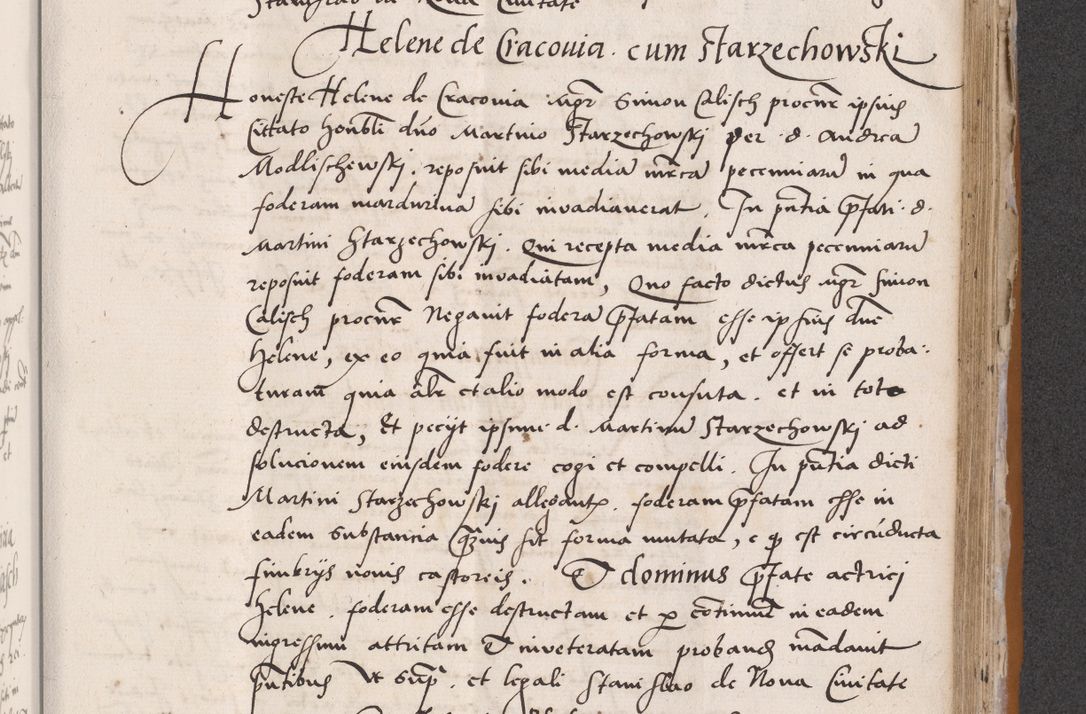 Helene de Cracouia cum Starzechowski
Honeste Helene de Cracouia mgr Simon Calisch procur ipsius
Cittato honbli dno Martino Starzechowskj per d. Andrea
Modlischewskj, reposuit sibi media mrca pecuniaru in qua
foderam mardurina sibi inuadiauerat. In pntia pfati d.
Martini Starzechowskj. Qui recepta media mrca pecuniaru
reposuit foderam sibi inuadiatam, Quo facto dictus mgr Simon
Calisch procur Negauit fodera pfatam esse ipsius dne
Helene, ex eo quia fuit in alia forma, et offert se proba-
turam quia alr et alio modo est consuta, et in toto
destructa, Et petijt ipsum d. Martinu Starzechowskj ad
solucionem eiusdem fodere cogi et compelli. In pntia dicti
Martini Starzechowskj allegantis foderam pfatam esse in
eadem substancia quis sit forma mutata, e q est circuducta
fimbrijs nouis castoreis. Et dominus pfate actricj
Helene foderam esse destructam et p continuu in eadem
ingressum attritam et inueteratam proband mandauit
pntibus vt supra et legali Stanislao de Noua Ciuitate